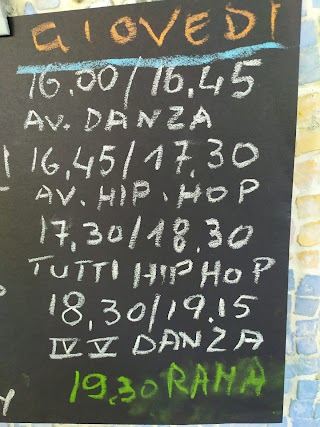 GIOVEDI
16.00/16.45
AV. DANZA
16,45/17.30
AV. HIP. HOP
17,30/18.30
TUTTI HIP HOP
18,30/19.15
IV V DANZA
19,30 RAMA